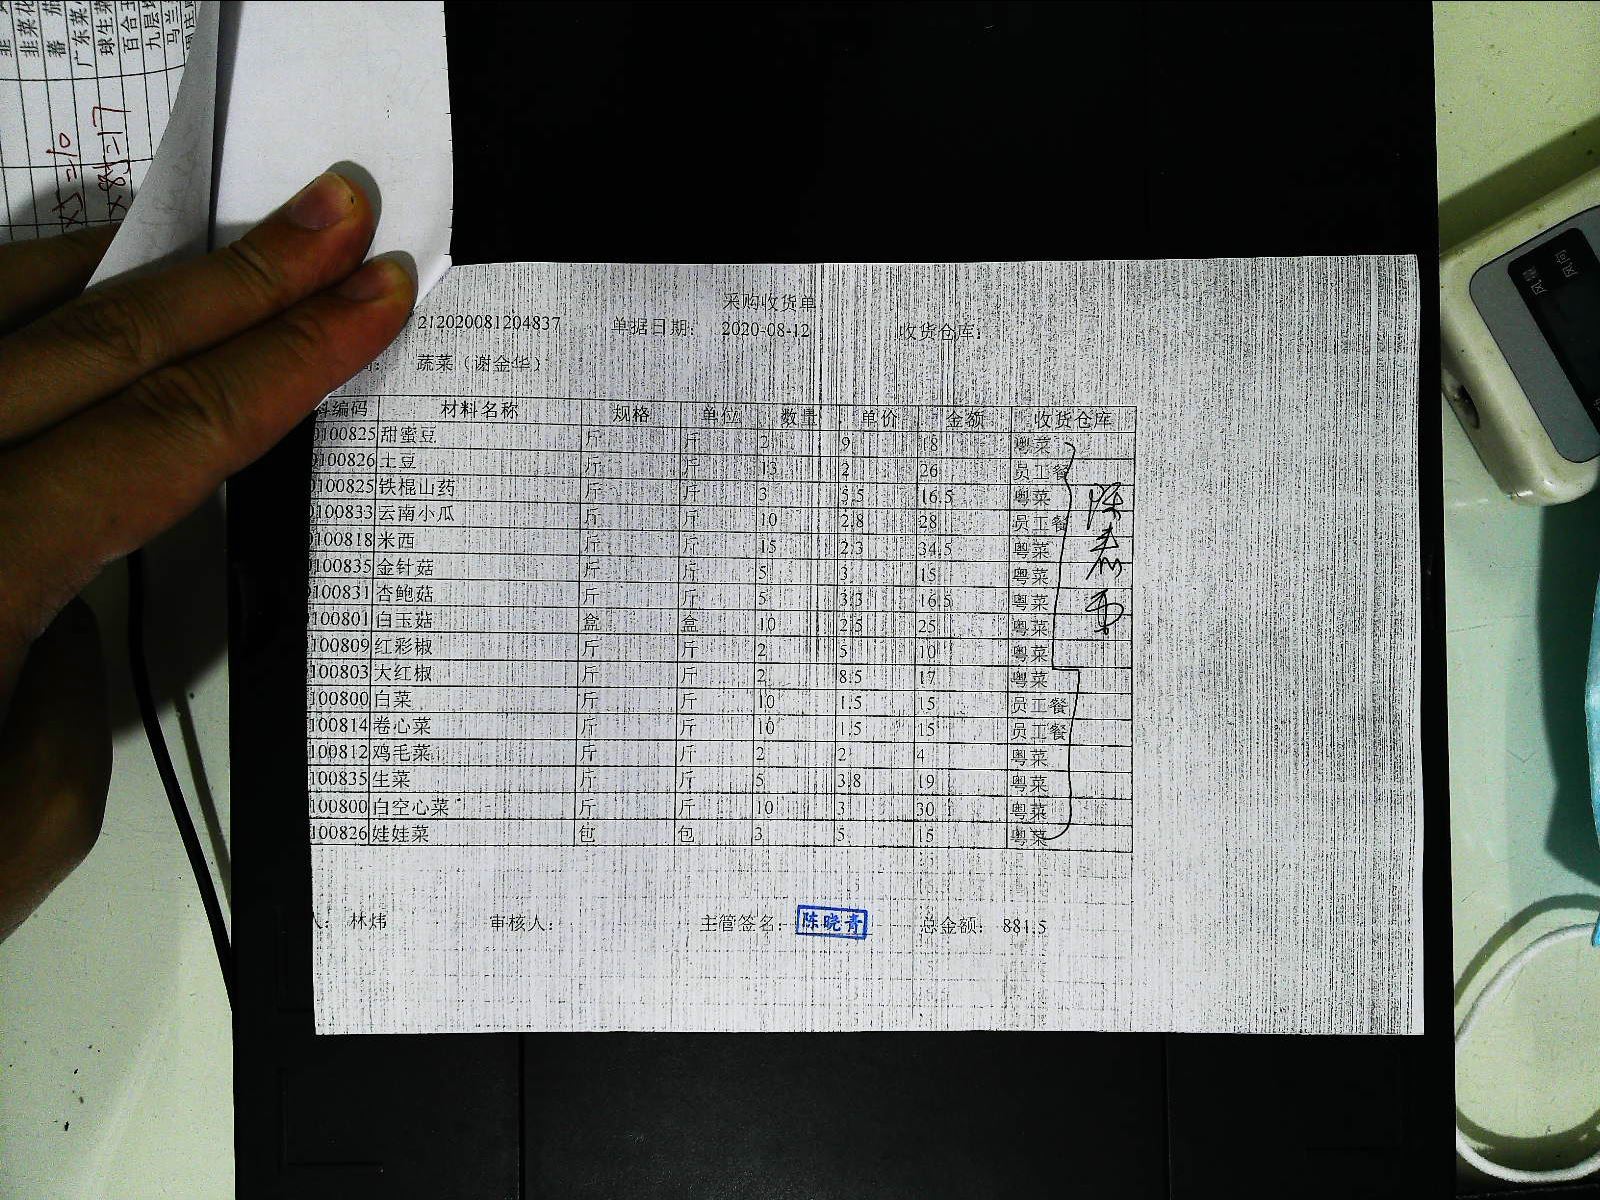 采购收货单
212020081204837 单据日期: 2020-08-12 收货仓库:
蔬菜(谢金华)
编码 材料名称 规格 单位 数量 单价 金额 收货仓库
0100825 甜蜜豆 斤 斤 2 9 18 粤菜
0100826 土豆 斤 斤 13 2 26 员工餐
0100825 铁棍山药 斤 斤 3 5.5 16.5 粤菜
0100833 云南小瓜 斤 斤 10 2.8 28 员工餐
0100818 米西 斤 斤 15 2.3 34.5 粤菜
100835 金针菇 斤 斤 5 3 15 粤菜
100831 杏鲍菇 斤 斤 5 3.3 16.5 粤菜
100801 白玉菇 盒 盒 10 2.5 25 粤菜
100809 红彩椒 斤 斤 2 5 10 粤菜
100803 大红椒 斤 斤 2 8.5 17 粤菜
100800 白菜 斤 斤 10 1.5 15 员工餐
100814 卷心菜 斤 斤 10 1.5 15 员工餐
100812 鸡毛菜 斤 斤 2 2 4 粤菜
100835 生菜 斤 斤 5 3.8 19 粤菜
100800 白空心菜 斤 斤 10 3 30 粤菜
100826 娃娃菜 包 包 3 5 15 粤菜
林炜 审核人: 主管签名: 陈晓青 总金额: 881.5
韭菜花
蕃
广东菜
球生菜
百合
九层
马兰
x5=10
x8.5=17
风量
风向